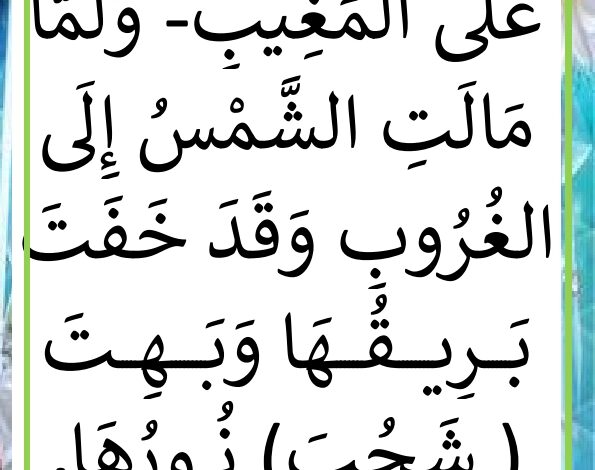 عَلَى المَغِيبِ- وَلَمَّا
مَالَتِ الشَّمْسُ إِلَى
الغُرُوبِ وَقَدَ خَفَتَ
بَـرِيـقُـهَا وَبَـهِـتَ
( شَحُبَ) نُـورُهَا،